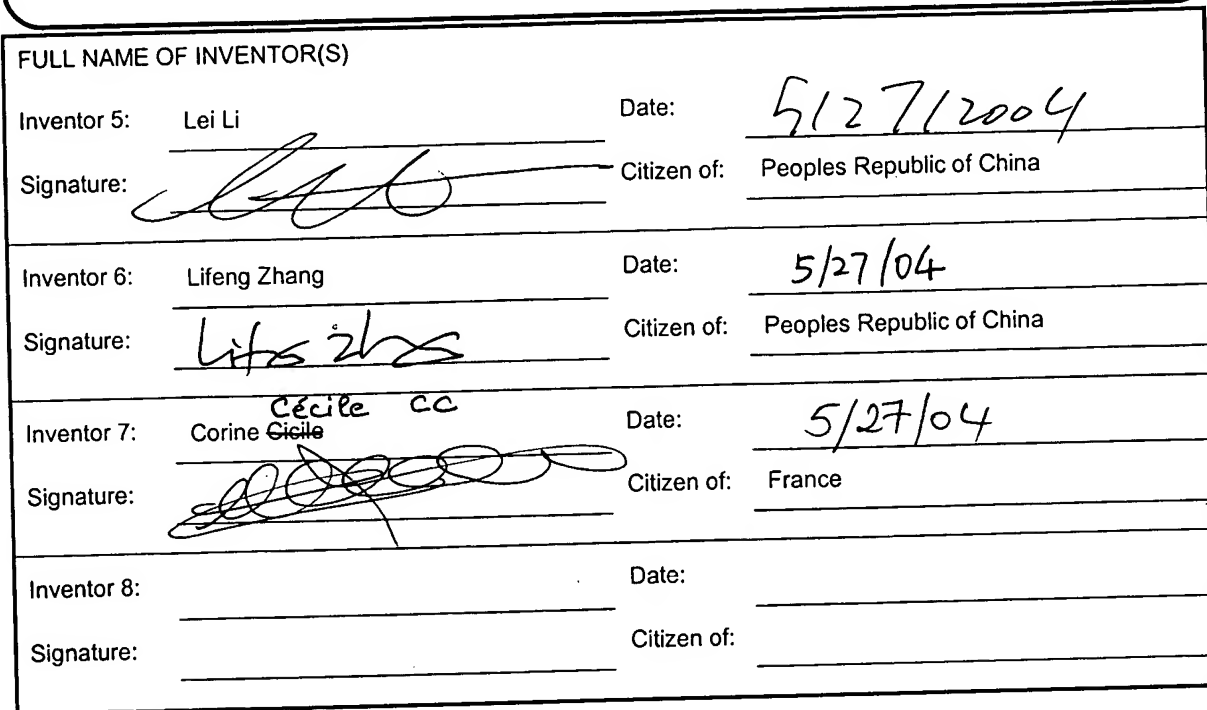 FULL NAME OF INVENTOR(S)
Inventor 5: Lei Li Date: 5/27/2004
Signature: Citizen of: Peoples Republic of China
Inventor 6: Lifeng Zhang Date: 5/27/04
Signature: Citizen of: Peoples Republic of China
Cécile CC
Inventor 7: Corine Cicile Date: 5/27/04
Signature: Citizen of: France
Inventor 8: Date:
Signature: Citizen of: